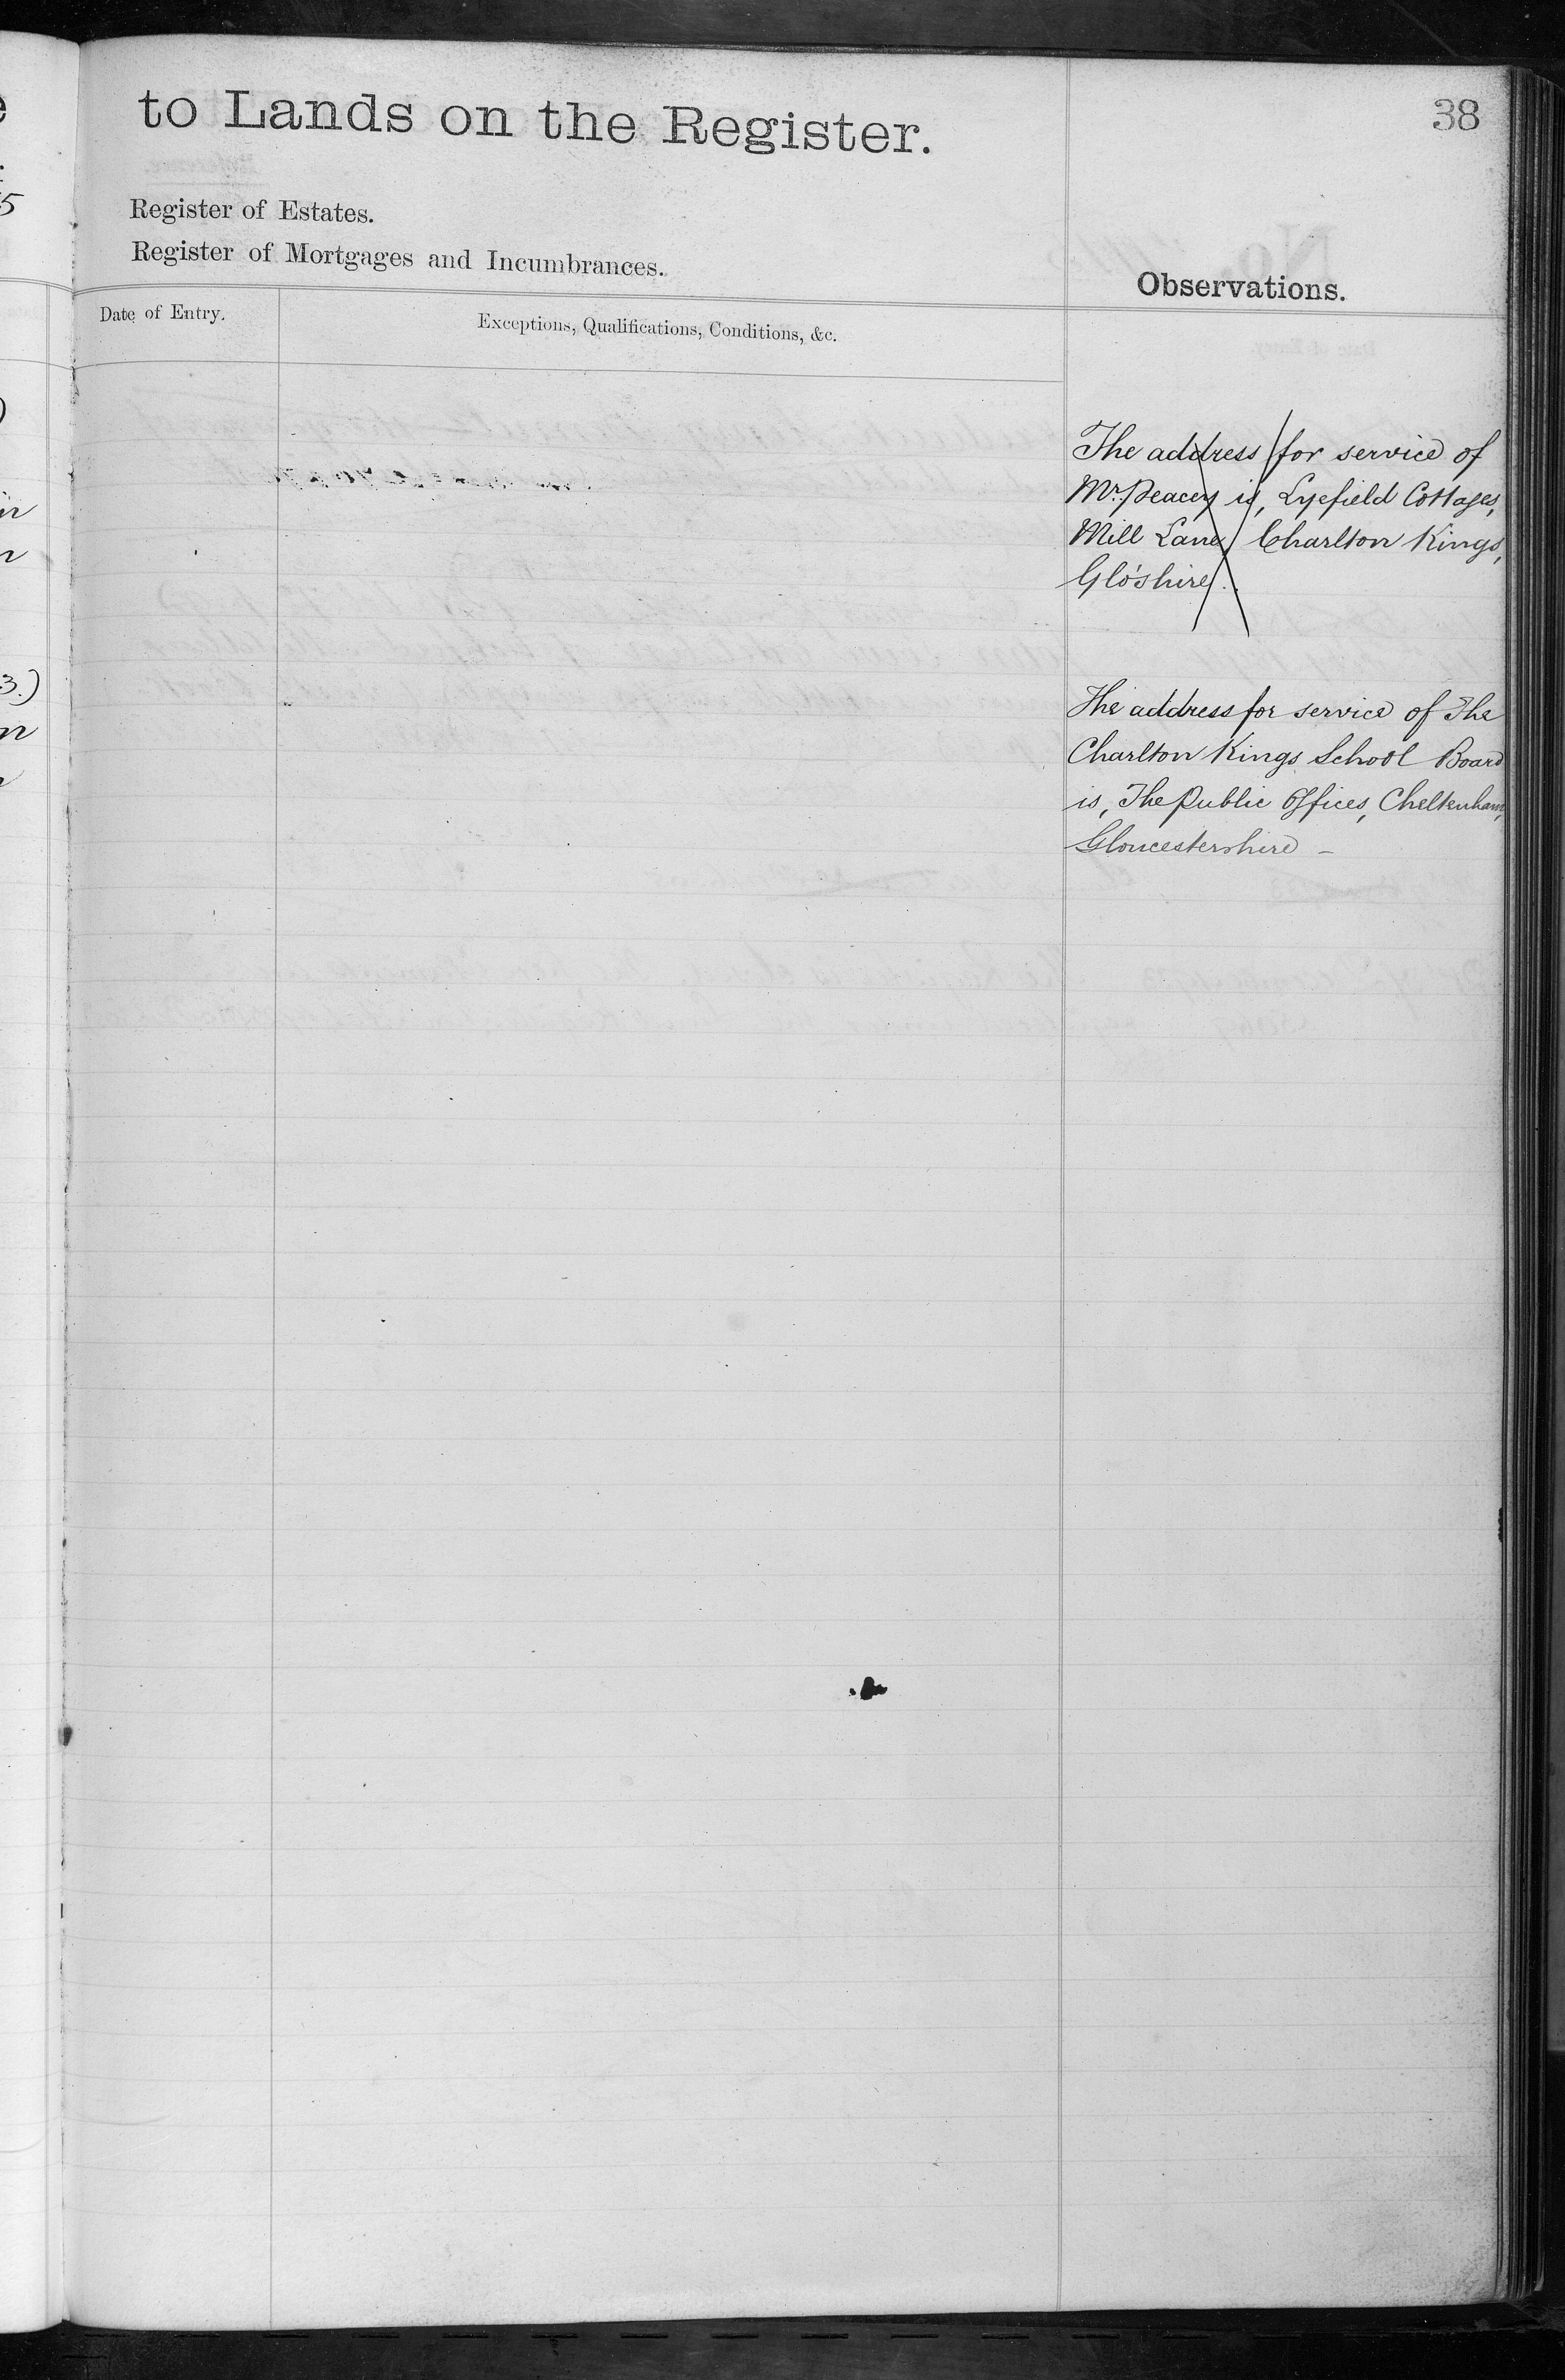 to Lands on the Register.
38
Register of Estates.
Register of Mortgages and Incumbrances.
Observations.
Date of Entry.
Exceptions, Qualifications, Conditions, &c.
The address for service of
Mr. Peacey is, Lyefield Cottages,
Mill Lane, Charlton Kings,
Glo'shire.
The address for service of The
Charlton Kings School Board
is, The Public Offices, Cheltenham,
Gloucestershire –